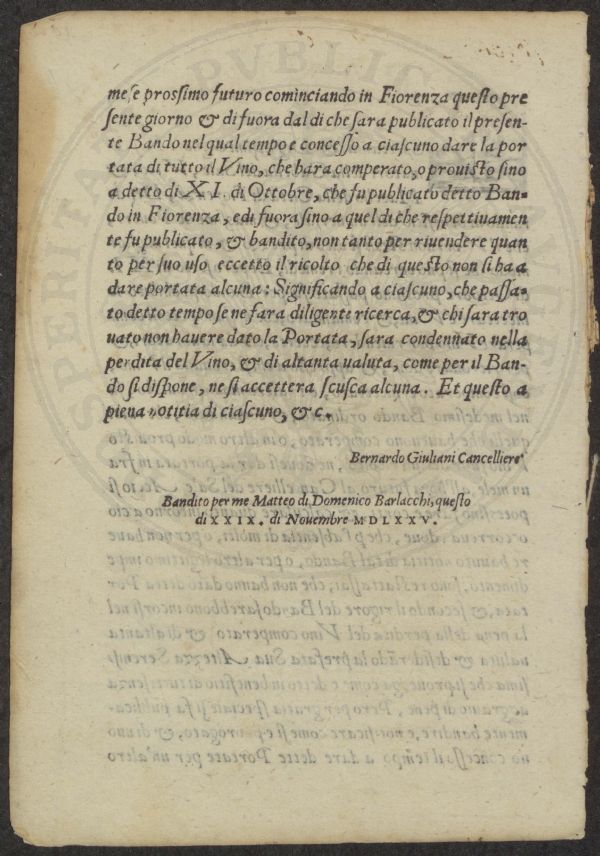 mese prossimo futuro cominciando in Fiorenza questo pre
sente giorno & di fuora dal di che sara publicato il presen-
te Bando nel qual tempo e concesso a ciascuno dare la por
tata di tutto il Vino, che hara comperato, o prouisto sino
a detto di XI. di Ottobre, che fu publicato detto Ban-
do in Fiorenza, e di fuora sino a quel di che respettiuamen
te fu publicato, & bandito, non tanto per riuendere quan
to per suo uso eccetto il ricolto che di questo non si ha a
dare portata alcuna: Significando a ciascuno, che passa-
to detto tempo se ne fara diligente ricerca, & chi sara tro
uato non hauere dato la Portata, sara condennato nella
perdita del Vino, & di altanta ualuta, come per il Ban-
do si dispone, ne si accettera scusca alcuna. Et questo a
piena notitia di ciascuno, & c.
Bernardo Giuliani Cancelliere
Bandito per me Matteo di Domenico Barlacchi, questo
di XXIX. di Nouembre MDLXXV.